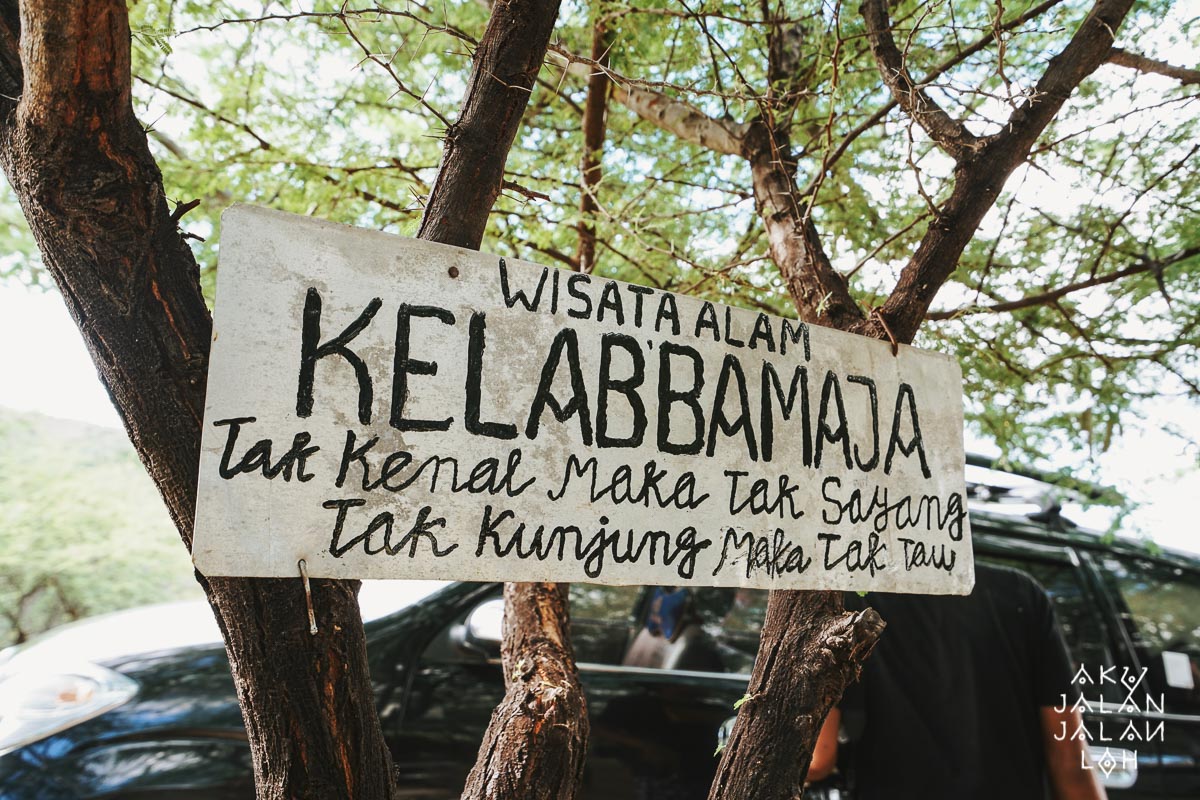 WISATA ALAM
KELAB'BAMAJA
Tak Kenal Maka Tak Sayang
Tak Kunjung Maka Tak Taw
AKU
JALAN
JALAN
LOH